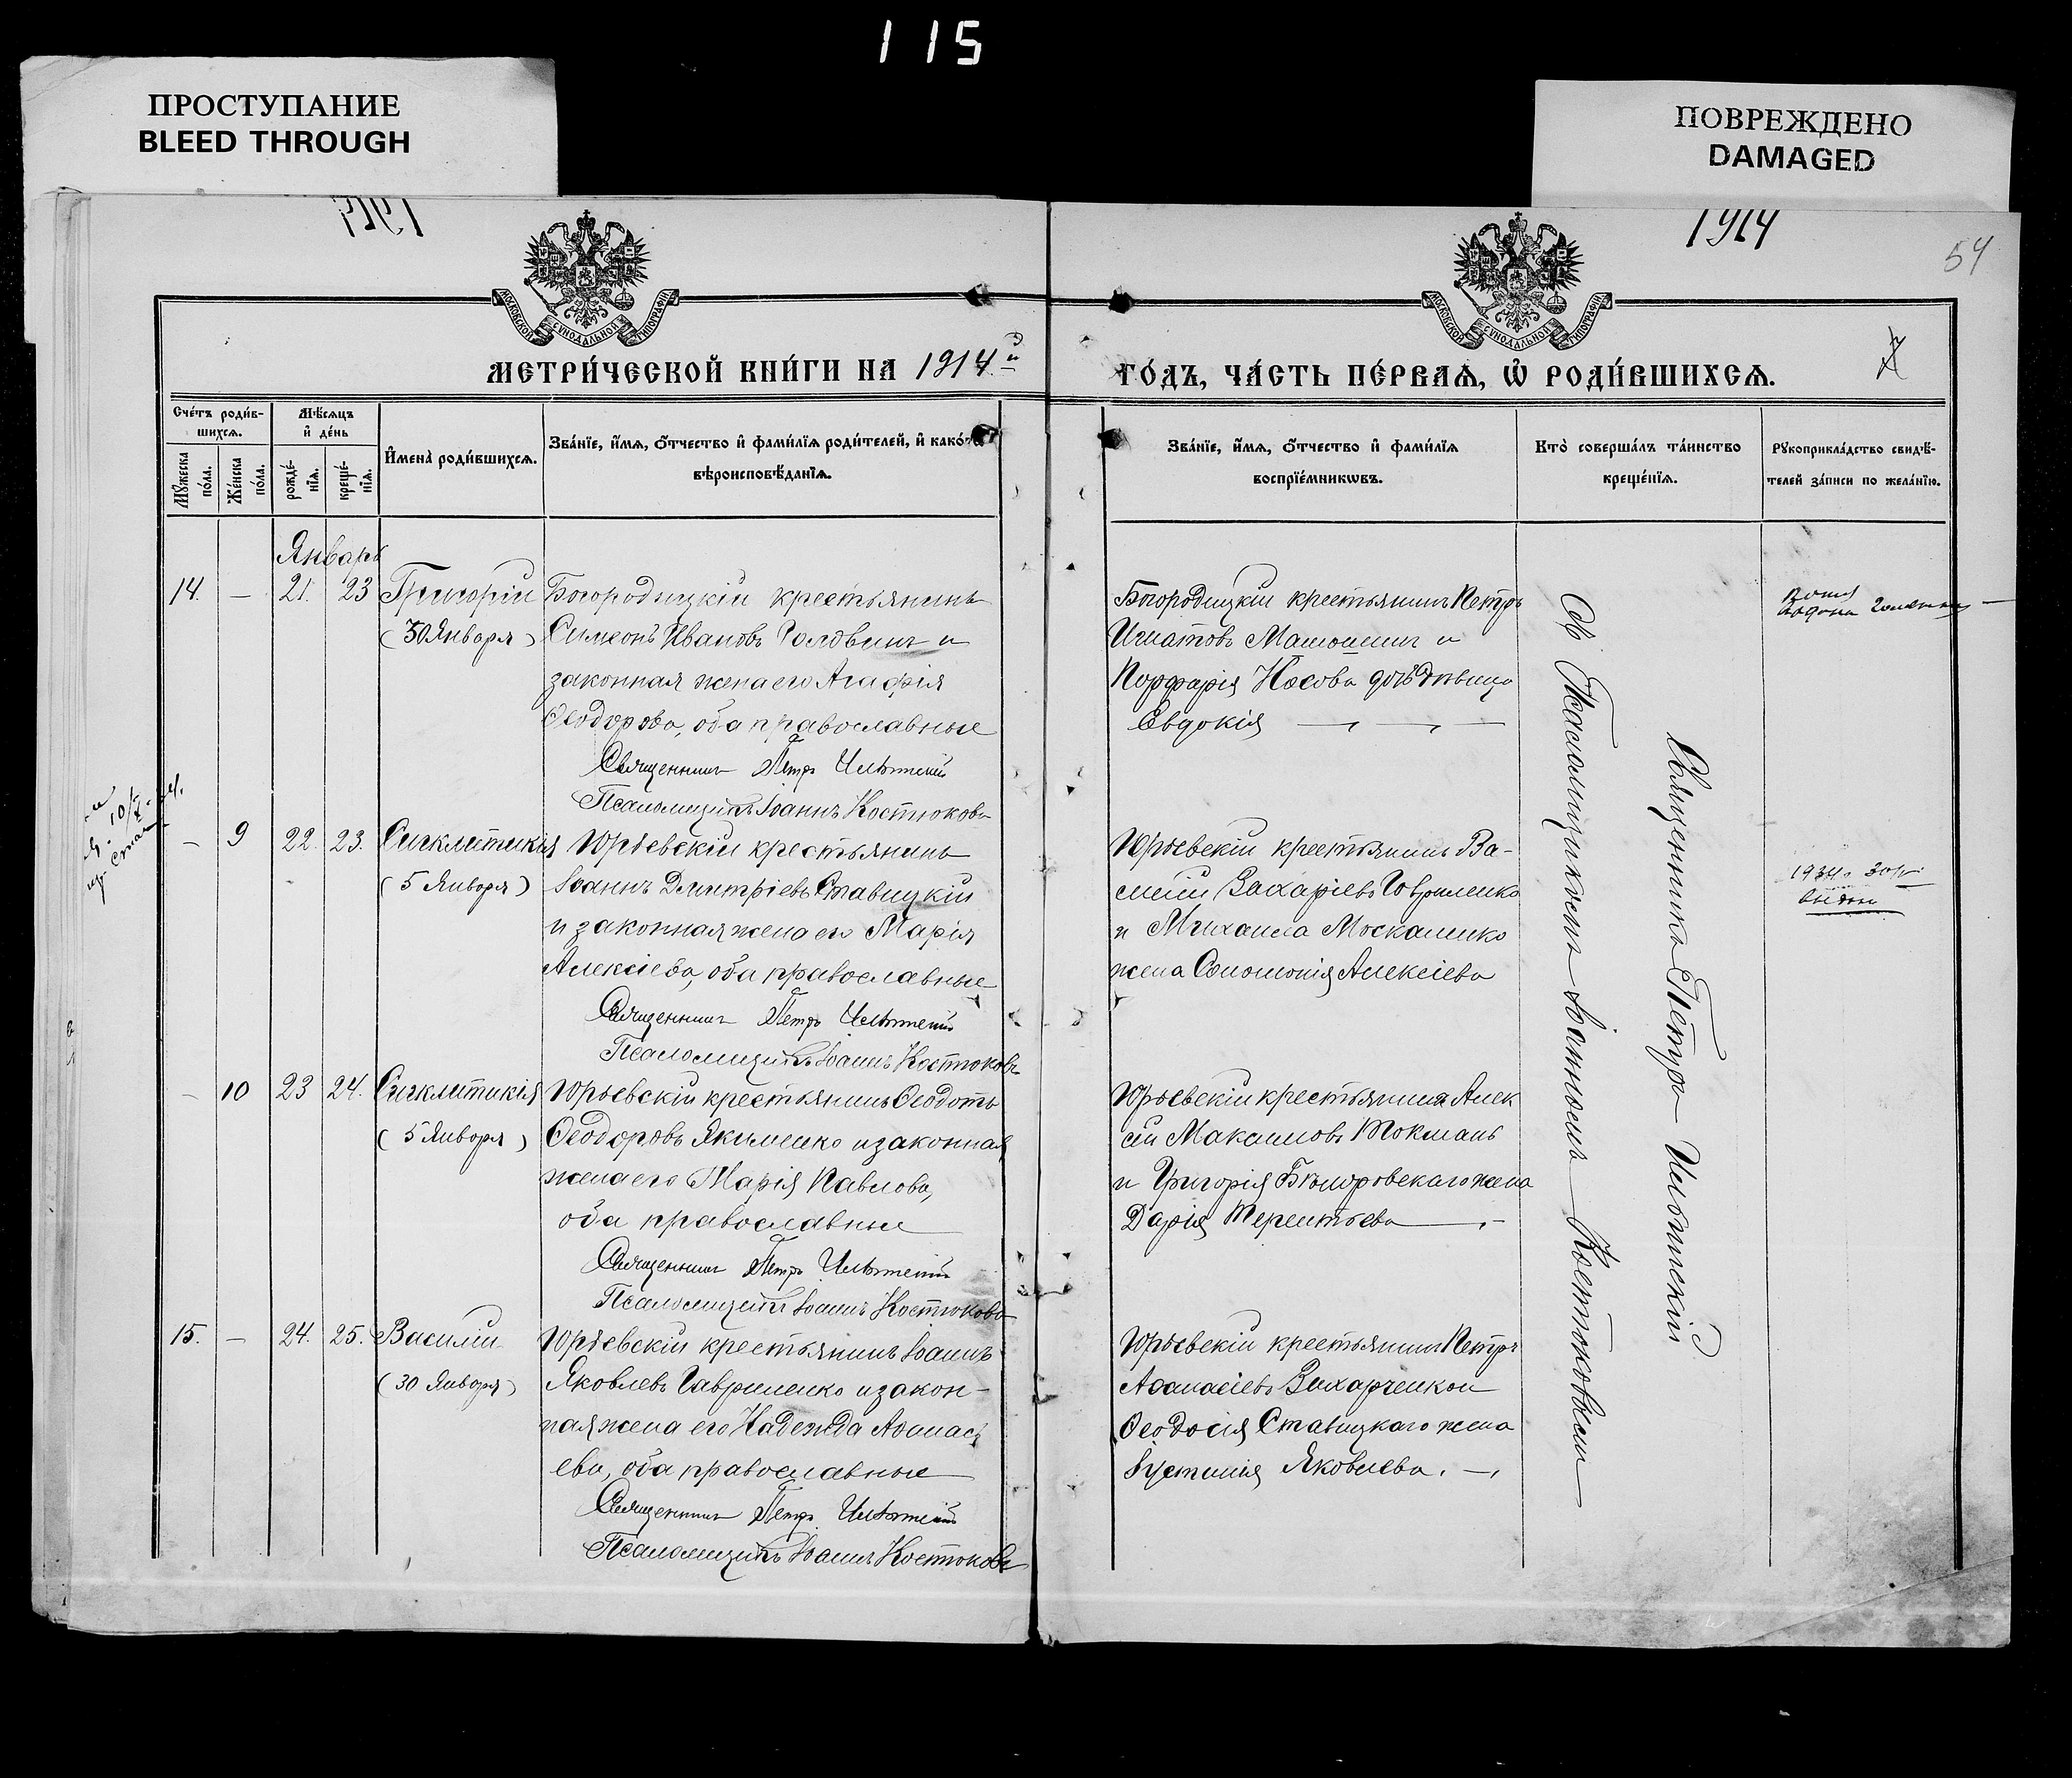 115
ПРОСТУПАНИЕ
BLEED THROUGH
ПОВРЕЖДЕНО
DAMAGED
1914
54
МОСКОВСКОЙ СѴНОДАЛЬНОЙ ТИПОГРАФІИ
МОСКОВСКОЙ СѴНОДАЛЬНОЙ ТИПОГРАФІИ
МЕТРИ́ЧЕСКОЙ КНИ́ГИ НА 1914й
ГО́ДЪ, ЧА́СТЬ ПЕ́РВАѦ, Ѡ҆ РОДИ́ВШИХСѦ.
Сче́тъ роди́в-
шихсѧ.
Мѣ́сѧцъ
и҆ де́нь
И҆мена̀ роди́вшихсѧ.
Зва́нїе, и҆́мѧ, ѻ҆́тчество и҆ фами́лїѧ роди́телей, и҆ како́гѡ
вѣроисповѣ́данїѧ.
Мꙋ́жеска
по́ла.
Же́нска
по́ла.
рожде́-
нїѧ.
креще́-
нїѧ.
Зва́нїе, и҆́мѧ, ѻ҆́тчество и҆ фами́лїѧ
воспрїе́мникѡвъ.
Кто̀ соверша́лъ та́инство
креще́нїѧ.
Рꙋкоприкла́дство свидѣ́-
телей за́писи по жела́нїю.
Январь
14. — 21. 23 Григорій
(30 Января)
Богородицкій крестьянинъ
Симеонъ Ивановъ Головинъ и
законная жена его Агафія
Ѳеодорова, оба православные
Священникъ Петръ
Псаломщикъ Іоаннъ Костюковъ
Богородицкій крестьянинъ Петръ
Игнатовъ и
Порфирія Носова дочь дѣвица
Евдокія
— 9 22. 23. Сигклитикія
(5 Января)
Юрьевскій крестьянинъ
Іоаннъ Димитріевъ Ставицкій
и законная жена его Марія
Алексіева, оба православные
Священникъ Петръ
Псаломщикъ Іоаннъ Костюковъ
Юрьевскій крестьянинъ Ва-
силій Захаріевъ Гавриленко
и Михаила Москаленко
жена Соломонія Алексіева
— 10 23 24. Сигклитикія
(5 Января)
Юрьевскій крестьянинъ Ѳеодотъ
Ѳеодоровъ Якименко и законная
жена его Марія Павлова,
оба православные
Священникъ Петръ
Псаломщикъ Іоаннъ Костюковъ
Юрьевскій крестьянинъ Алек
сій Максимовъ Токмань
и Григорія жена
Дарія Терентьева
15. — 24. 25. Василій
(30 Января)
Юрьевскій крестьянинъ Іоаннъ
Яковлевъ Гавриленко и закон-
ная жена его Надежда Аѳанась
ева, оба православные
Священникъ Петръ
Псаломщикъ Іоаннъ Костюковъ
Юрьевскій крестьянинъ Петръ
Аѳанасіевъ Захарченко и
Ѳеодосія Ставицкаго жена
Іустинія Яковлева.
Священникъ Петръ
Съ Псаломщикомъ Іоанномъ Костюковымъ